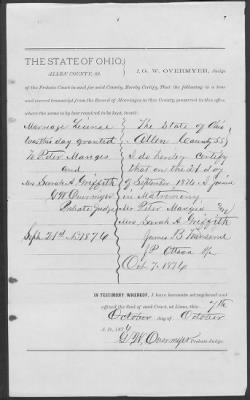 THE STATE OF OHIO,
ALLEN COUNTY, SS. I, G. W. OVERMYER, Judge
of the Probate Court in and for said County, Hereby Certify, That the following is a true
and correct transcript from the Record of Marriages in this County, preserved in this office
where the same is by law required to be kept, to-wit:
Marriage License
was this day granted
to Peter Manges
and
Mrs Sarah A. Griffith
G W Overmyer
Probate Judge
Sept 21st 1874
The State of Ohio
Allen County SS
I do hereby certify
that on the 21 day
of September 1874 I joined
in Matrimony
Mr Peter Manges and
Mrs Sarah A. Griffith
James B. Townsend
J P Ottawa Tp
Oct 7. 1874
IN TESTIMONY WHEREOF, I have hereunto set my hand and
affixed the Seal of said Court, at Lima, this 7th
October day of October
A. D. 187
G W Overmyer Probate Judge.